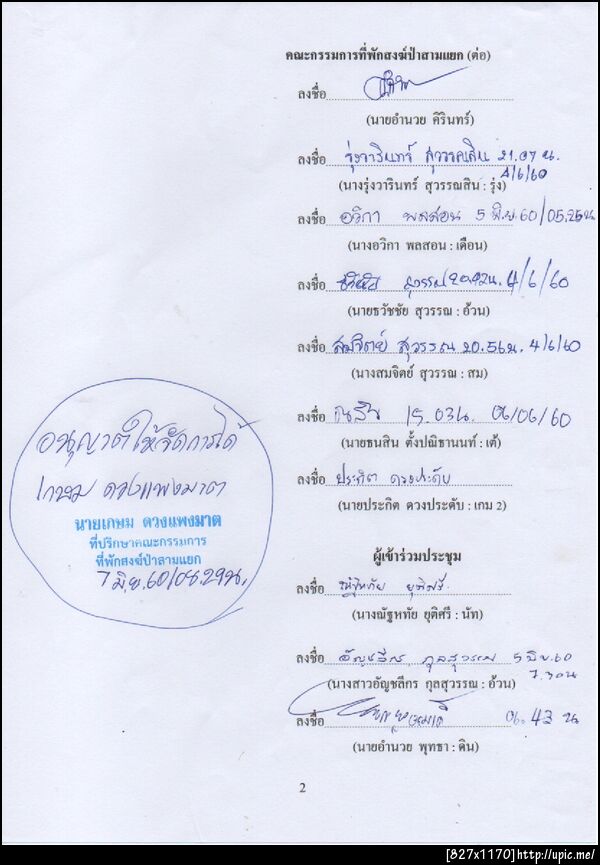 คณะกรรมการที่พักสงฆ์ป่าสามแยก (ต่อ)
ลงชื่อ
(นายอำนวย คีรินทร์)
ลงชื่อ รุ่งวารินทร์ สุวรรณสิน 21.07 น.
4/6/60
(นางรุ่งวารินทร์ สุวรรณสิน : รุ่ง)
ลงชื่อ อวิกา พลสอน 5 มิ.ย. 60/05.25น
(นางอวิกา พลสอน : เดือน)
ลงชื่อ ธวัชชัย สุวรรณ 4/6/60
(นายธวัชชัย สุวรรณ : อ้วน)
ลงชื่อ สมจิตย์ สุวรรณ 20.56น. 4/6/60
(นางสมจิตย์ สุวรรณ : สม)
ลงชื่อ ธนสิน 15.03น. 06/06/60
(นายธนสิน ตั้งปณิธานนท์ : เต้)
ลงชื่อ ประกิต ดวงประดับ
(นายประกิต ดวงประดับ : เกม 2)
อนุญาตให้จัดการได้
เกษม ดวงแพงมาต
นายเกษม ดวงแพงมาต
ที่ปรึกษาคณะกรรมการ
ที่พักสงฆ์ป่าสามแยก
7 มิ.ย. 60/08.29น.
ผู้เข้าร่วมประชุม
ลงชื่อ ณัฐหทัย ยุติศรี
(นางณัฐหทัย ยุติศรี : นัท)
ลงชื่อ อัญชลีกร กุลสุวรรณ 5 มิย.60
7.30น
(นางสาวอัญชลีกร กุลสุวรรณ : อ้วน)
ลงชื่อ 06.43 น
(นายอำนวย พุทธา : ดิน)
2
[827x1170]http://upic.me/